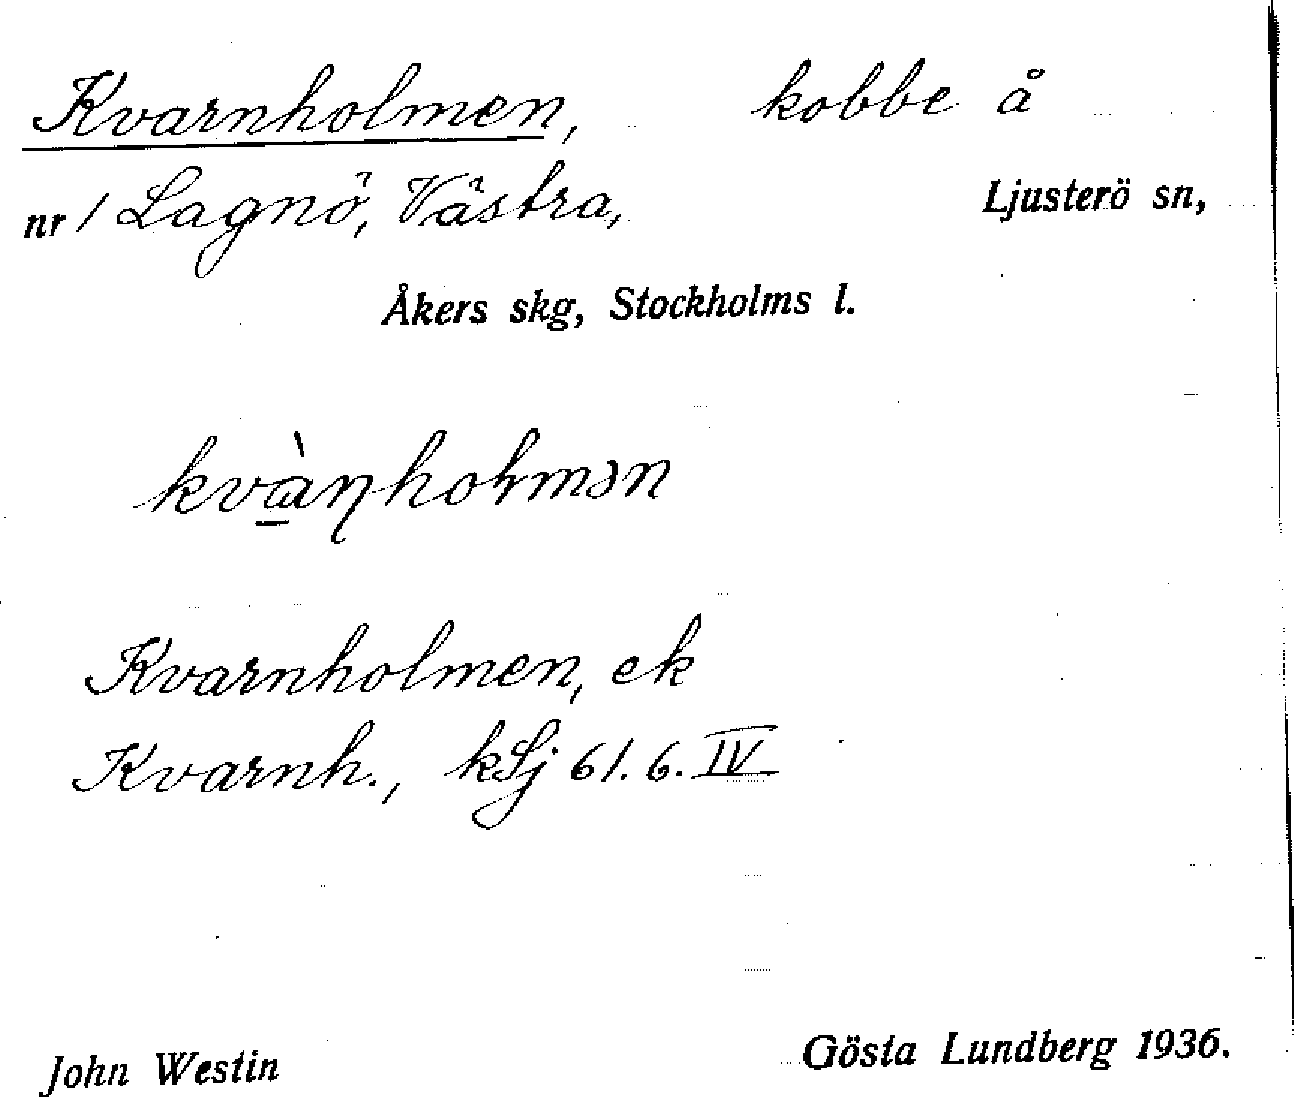 Kvarnholmen, kobbe å
nr 1 Lagnö, Västra, Ljusterö sn,
Åkers skg, Stockholms l.
kvàṇhoḷmən
Kvarnholmen, ek
Kvarnh., kLj 61. 6. IV
John Westin Gösta Lundberg 1936.